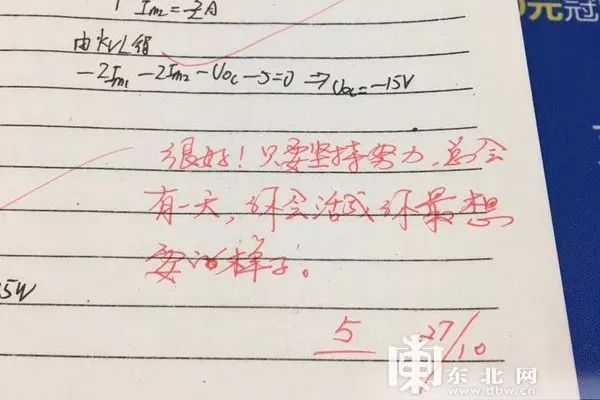 Im2=2A
由KVL得
-2Im1-2Im2-Uoc-5=0 ⇒Uoc=-15V
很好！只要坚持努力，总会
有一天，你会活成你最想
要的样子。
5W
5 27/10
元冠
东北网
www.dbw.cn